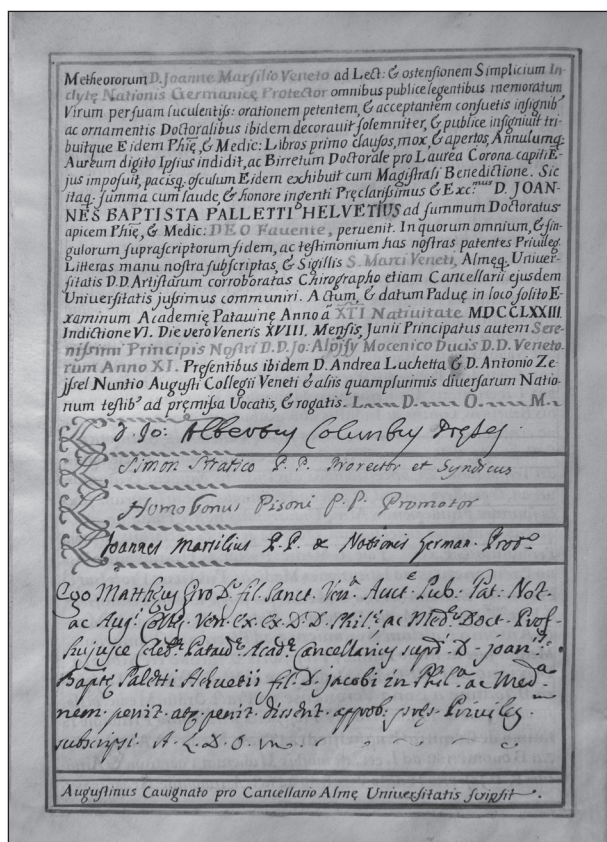 Metheororum D. Joanne Marsilio Veneto ad Lect: & ostensionem Simplicium In
clytę Nationis Germanicę Protector omnibus publice legentibus memoratum
Virum per suam luculentiss: orationem petentem, & acceptantem consuetis insignib'
ac ornamentis Doctoralibus ibidem decorauit solemniter, & publice insigniuit tri-
buitque Eidem Phię, & Medic: Libros primo clausos, mox, & apertos, Annulumq;
Aureum digito Ipsius indidit, ac Birretum Doctorale pro Laurea Corona capiti E-
jus imposuit, pacisq; osculum Eidem exhibuit cum Magistrali Benedictione. Sic
itaq; summa cum laude, & honore ingenti Pręclarissimus & Exc.mus D. JOAN-
NES BAPTISTA PALLETTI HELVETIUS ad summum Doctoratus
apicem Phię, & Medic: DEO Fauente, peruenit. In quorum omnium, & sin-
gulorum suprascriptorum fidem, ac testimonium has nostras patentes Priuileg.
Litteras manu nostra subscriptas, & Sigillis S. Marci Veneti, Almęq; Uniuer-
sitatis D.D. Artistarum corroboratas Chirographo etiam Cancellarii ejusdem
Uniuersitatis jussimus communiri. Actum, & datum Paduę in loco solito E-
xaminum Academię Patauinę Anno á XTI Natiuitate MDCCLXXIII
Indictione VI. Die vero Veneris XVIII. Mensis, Junii Principatus autem Sere-
nissimi Principis Nostri D.D. Jo: Aloyssy Mocenico Ducis D.D. Veneto-
rum Anno XI. Pręsentibus ibidem D. Andrea Luchetta & D. Antonio Ze-
jssel Nuntio Augusti Collegii Veneti & aliis quamplurimis diuersarum Natio-
num testib' ad pręmissa Uocatis, & rogatis. L D. O. M.
D. Jo: Albertus Columbus Pręses.
Simon Stratico P. P. Prorector et Syndicus
Homobonus Pisoni P. P. Promotor
Joannes Marsilius P. P. & Nationis German. Prot.
Ego Matthęus fil. Sanct. Ven. Auct. Pub. Pat: Not.
ac Aug. Colleg. Ven. Ex. Ex. D. D. Phil. ac Med. Doct. Prof.
hujusce Acad. Cancellarius D. Joan.
Baptę Paletti Heluetii fil. D. Jacobi in Phil. ac Med.
nem. penit. atq; penit. dissent. approb. Priuileg.
subscripsi. A. L. D. O. M.
Augustinus Cauignato pro Cancellario Almę Uniuersitatis scripsit.